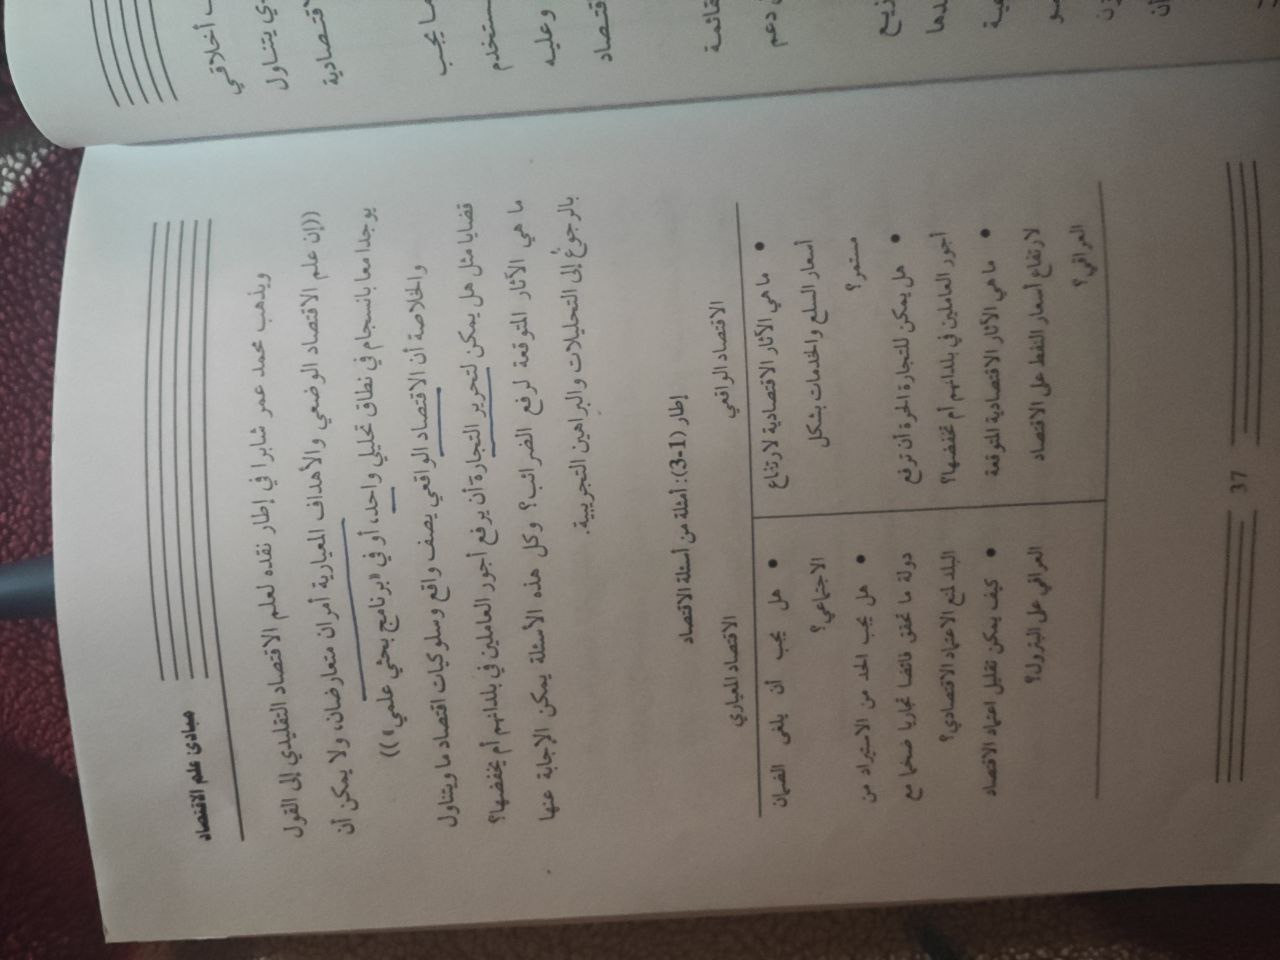 مبادئ علم الاقتصاد
ويذهب محمد عمر شابرا في إطار نقده لعلم الاقتصاد التقليدي إلى القول
((إن علم الاقتصاد الوضعي والأهداف المعيارية أمران متعارضان، ولا يمكن أن
يوجدا معا بانسجام في نطاق تحليلي واحد، أو في «برنامج بحثي علمي»))
والخلاصة أن الاقتصاد الواقعي يصف واقع وسلوكيات اقتصاد ما ويتناول
قضايا مثل هل يمكن لتحرير التجارة أن يرفع أجور العاملين في بلدانهم أم يخفضها؟
ما هي الآثار المتوقعة لرفع الضرائب؟ وكل هذه الأسئلة يمكن الإجابة عنها
بالرجوع إلى التحليلات والبراهين التجريبية.
إطار (1-3): أمثلة من أسئلة الاقتصاد
الاقتصاد الواقعي
• ما هي الآثار الاقتصادية لارتفاع
أسعار السلع والخدمات بشكل
مستمر؟
• هل يمكن للتجارة الحرة أن ترفع
أجور العاملين في بلدانهم أم تخفضها؟
• ما هي الآثار الاقتصادية المتوقعة
لارتفاع أسعار النفط على الاقتصاد
العراقي؟
الاقتصاد المعياري
• هل يجب أن يلغى الضمان
الاجتماعي؟
• هل يجب الحد من الاستيراد من
دولة ما تحقق فائضا تجاريا ضخما مع
البلد لمنع الاعتماد الاقتصادي؟
• كيف يمكن تقليل اعتماد الاقتصاد
العراقي على البترول؟
37
أخلاقي
يتناول
يجب
وعليه
دعم